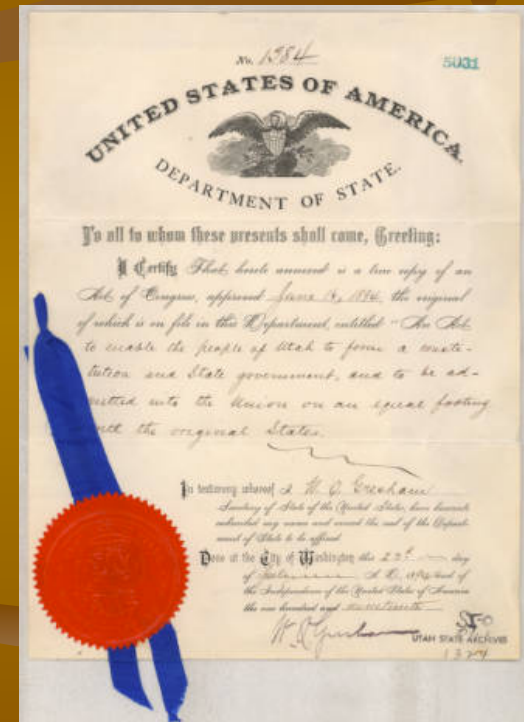 No. 1984
5031
UNITED STATES OF AMERICA.
DEPARTMENT OF STATE.
To all to whom these presents shall come, Greeting:
I Certify That hereto annexed is a true copy of an
Act of Congress, approved June 16, 1894, the original
of which is on file in this Department, entitled "An Act
to enable the people of Utah to form a consti-
tution and State government, and to be ad-
mitted into the Union on an equal footing
the original States.
In testimony whereof I W. Q. Gresham
Secretary of State of the United States, have hereunto
subscribed my name and caused the seal of the Depart-
ment of State to be affixed.
Done at the City of Washington this day
of A.D. 1894 and of
the Independence of the United States of America
the one hundred and nineteenth
W. Q. Gresham
UTAH STATE ARCHIVES